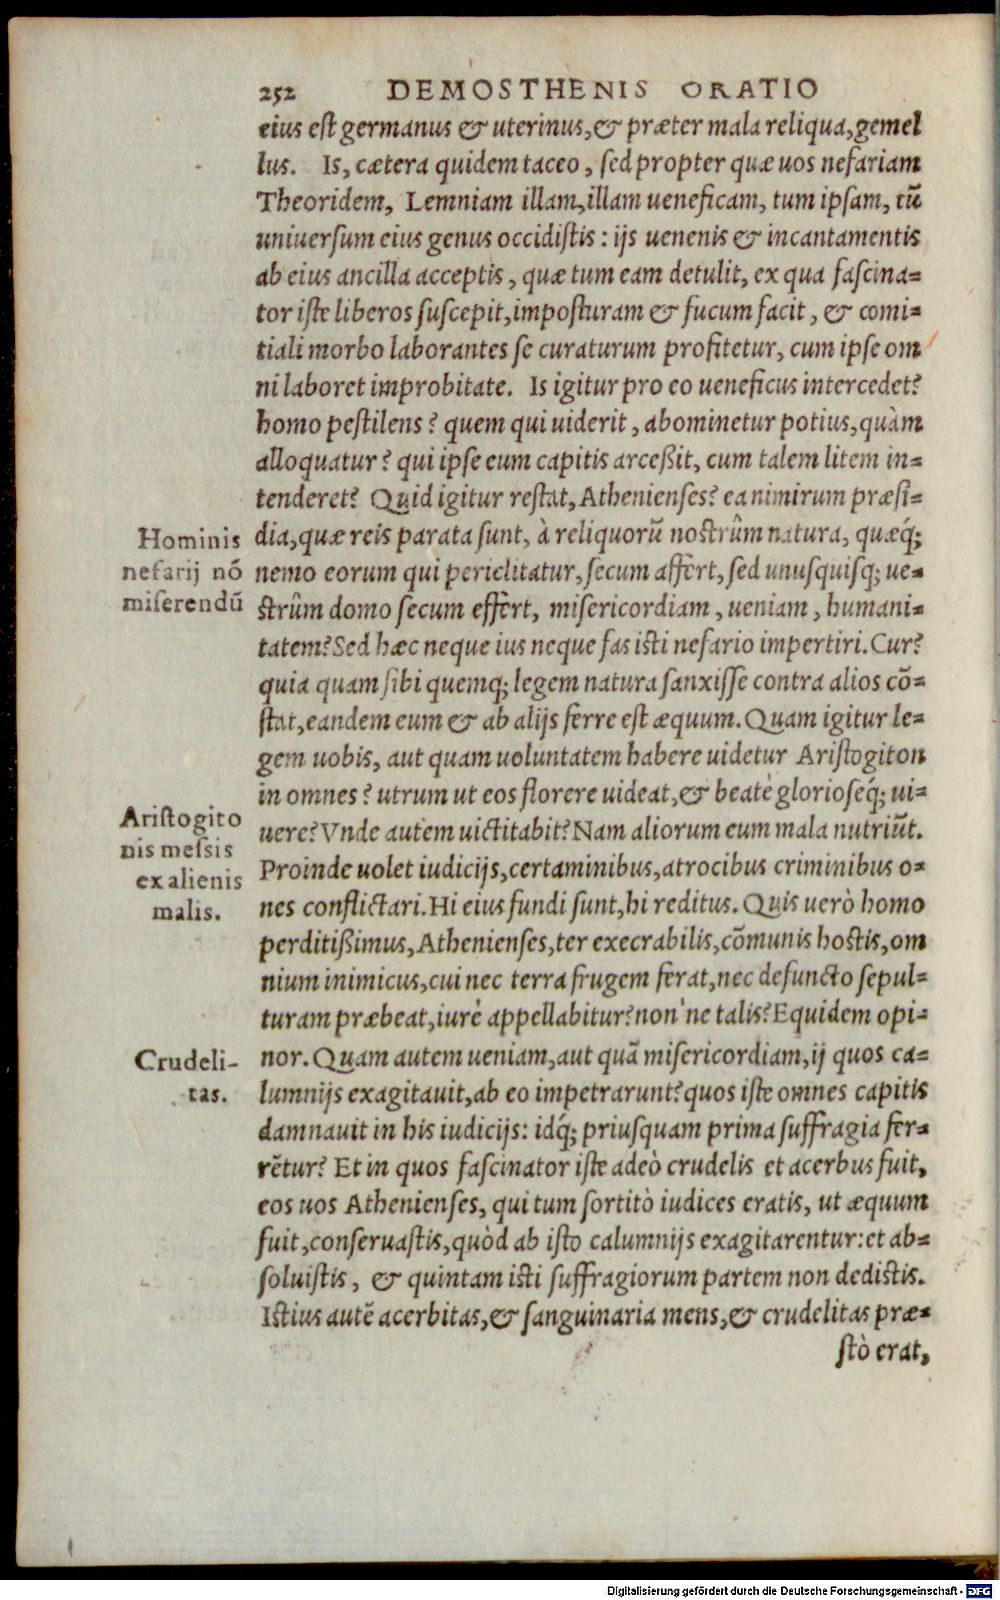 252 DEMOSTHENIS ORATIO
eius est germanus & uterinus, & præter mala reliqua, gemel
lus. Is, cætera quidem taceo, sed propter quæ uos nefariam
Theoridem, Lemniam illam, illam ueneficam, tum ipsam, tū
uniuersum eius genus occidistis: ijs uenenis & incantamentis
ab eius ancilla acceptis, quæ tum eam detulit, ex qua fascina=
tor iste liberos suscepit, imposturam & fucum facit, & comi=
tiali morbo laborantes se curaturum profitetur, cum ipse om
ni laboret improbitate. Is igitur pro eo ueneficus intercedet?
homo pestilens? quem qui uiderit, abominetur potius, quàm
alloquatur? qui ipse eum capitis arceßit, cum talem litem in=
tenderet? Quid igitur restat, Athenienses? ea nimirum præsi=
dia, quæ reis parata sunt, à reliquorū nostrûm natura, quæq́;
nemo eorum qui periclitatur, secum affert, sed unusquisq; ue=
strûm domo secum effert, misericordiam, ueniam, humani=
tatem? Sed hæc neque ius neque fas isti nefario impertiri. Cur?
quia quam sibi quemq; legem natura sanxisse contra alios cō=
stat, eandem eum & ab alijs ferre est æquum. Quam igitur le=
gem uobis, aut quam uoluntatem habere uidetur Aristogiton
in omnes? utrum ut eos florere uideat, & beatè glorioseq́; ui=
uere? Vnde autem uictitabit? Nam aliorum eum mala nutriūt.
Proinde uolet iudicijs, certaminibus, atrocibus criminibus o=
nes conflictari. Hi eius fundi sunt, hi reditus. Quis uerò homo
perditißimus, Athenienses, ter execrabilis, cōmunis hostis, om
nium inimicus, cui nec terra frugem ferat, nec defuncto sepul=
turam præbeat, iurè appellabitur? non'ne talis? Equidem opi=
nor. Quam autem ueniam, aut quā misericordiam, ij quos ca=
lumnijs exagitauit, ab eo impetrarunt? quos iste omnes capitis
damnauit in his iudicijs: idq́; priusquam prima suffragia fer=
rētur? Et in quos fascinator iste adeò crudelis et acerbus fuit,
eos uos Athenienses, qui tum sortitò iudices eratis, ut æquum
fuit, conseruastis, quòd ab isto calumnijs exagitarentur: et ab=
soluistis, & quintam isti suffragiorum partem non dedistis.
Istius autē acerbitas, & sanguinaria mens, & crudelitas præ=
stò erat,
Hominis
nefarij nō
miserendū
Aristogito
nis messis
ex alienis
malis.
Crudeli-
tas.
Digitalisierung gefördert durch die Deutsche Forschungsgemeinschaft - DFG